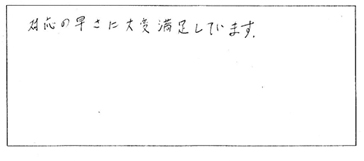 対応の早さに大変満足しています。